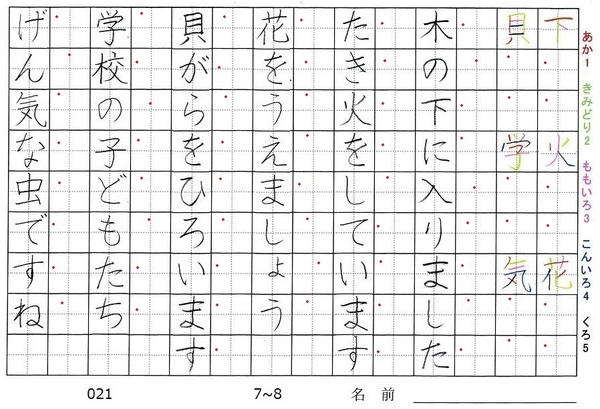 あか1 きみどり2 ももいろ3 こんいろ4 くろ5
下 火 花
貝 学 気
木の下に入りました
たき火をしています
花をうえましょう
貝がらをひろいます
学校の子どもたち
げん気な虫ですね
021 7~8 名前